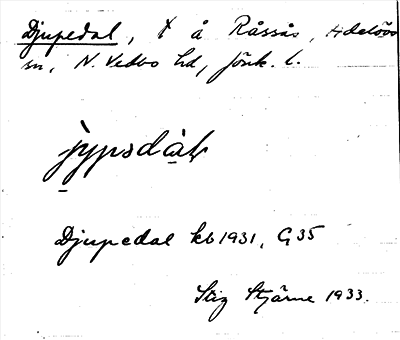 Djupedal, t å Råssås, Adelöös
sn, N. Vedbo hd, Jönk. l.
jypsdàɫ
Djupedal kb 1931, G35
Stig Stjärne 1933.